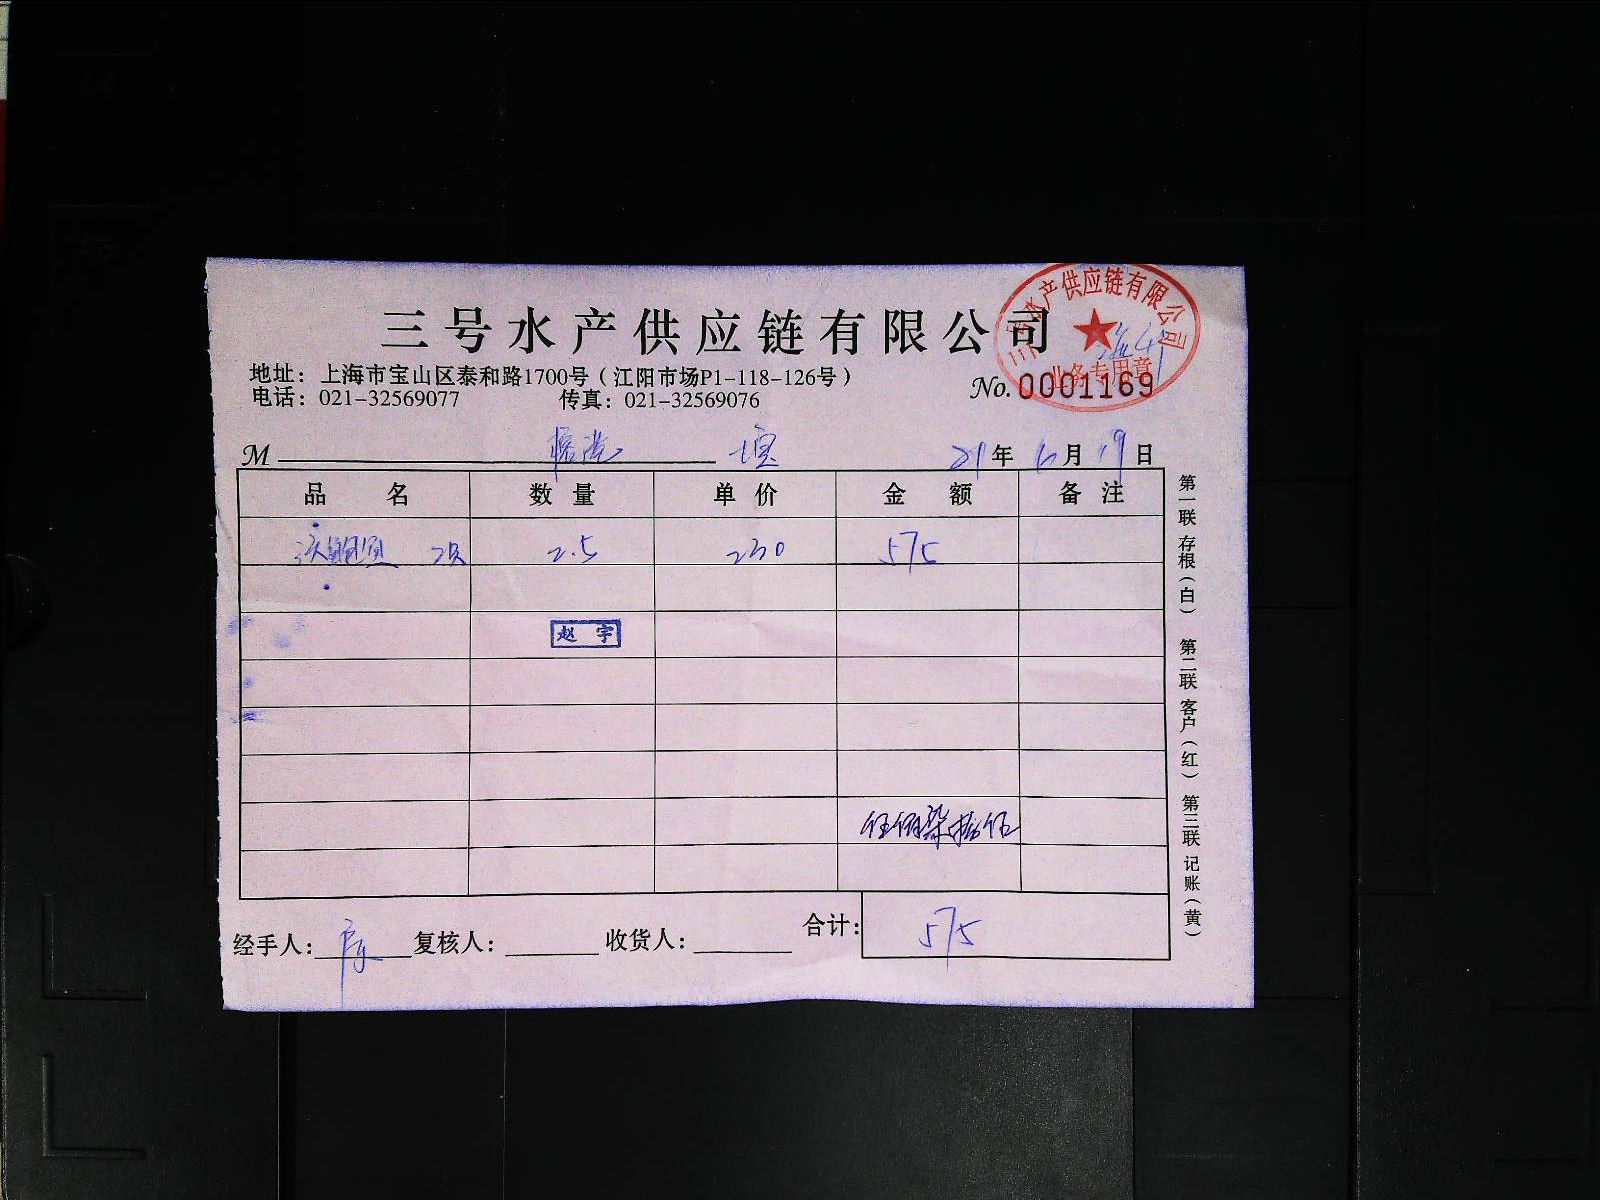 三号水产供应链有限公司
三号水产供应链有限公司
业务专用章
地址：上海市宝山区泰和路1700号（江阳市场P1-118-126号）
电话：021-32569077 传真：021-32569076
No. 0001169
M 21年 6月 19日
品 名 数 量 单 价 金 额 备 注
2.5 230 575
赵 宇
伍佰柒拾伍
合计: 575
经手人: 复核人: 收货人:
第一联 存根（白） 第二联 客户（红） 第三联 记账（黄）